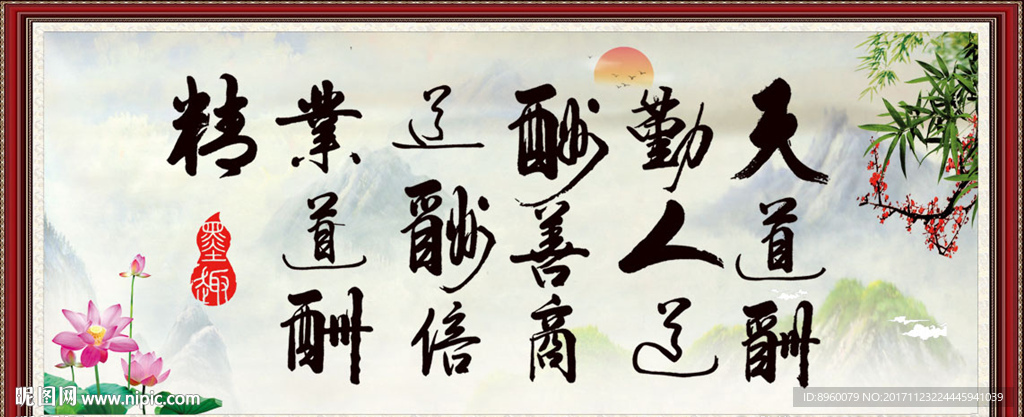 天道酬
勤人道
酬善商
道酬信
业道酬
精
墨趣
昵图网
www.nipic.com
ID:8960079 NO:20171123224445941039